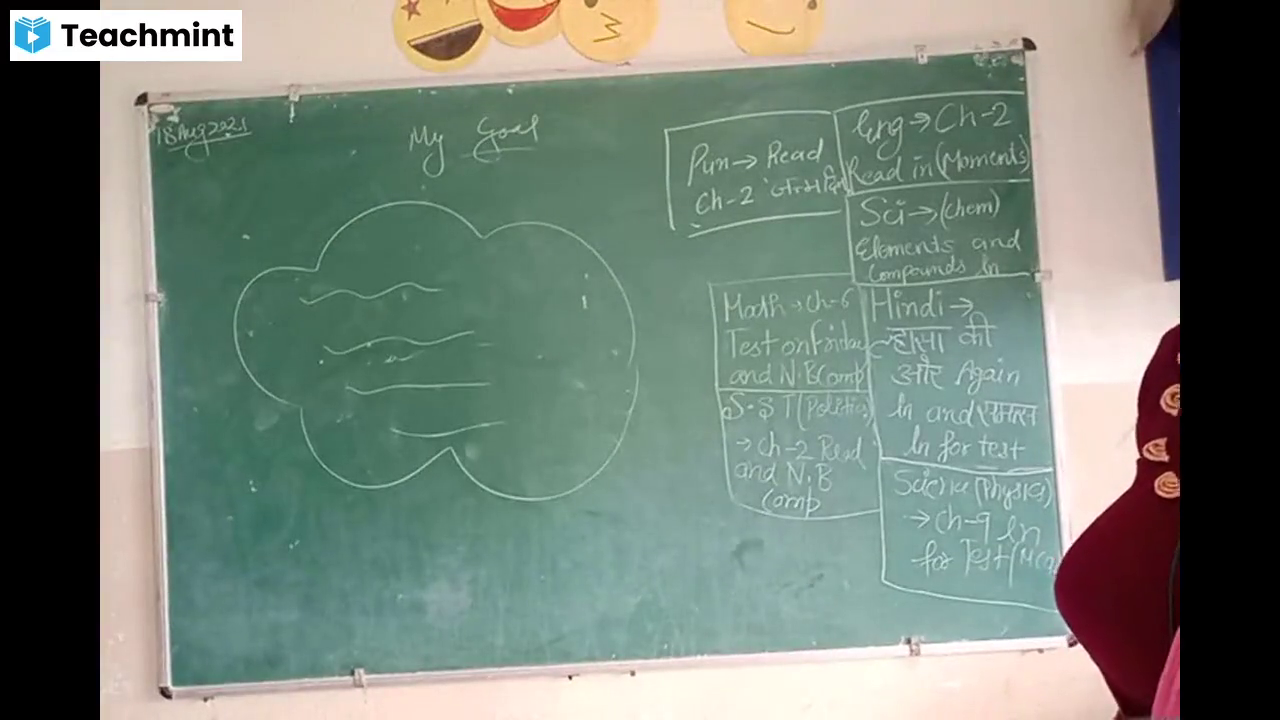 Teachmint
18 Aug 2021
My Goal
Pun → Read
Ch-2 जन्मदिन
Eng → Ch-2
Read in (Moments)
Sci → (Chem)
Elements and
Compounds ln
Math → Ch-6
Test on Friday
and N.B Comp
S.ST (Politics)
→ Ch-2 Read
and N.B
Comp
Hindi →
की
और Again
ln and
ln for test
Science (Physics)
→ Ch-9 ln
for Test (MCQ